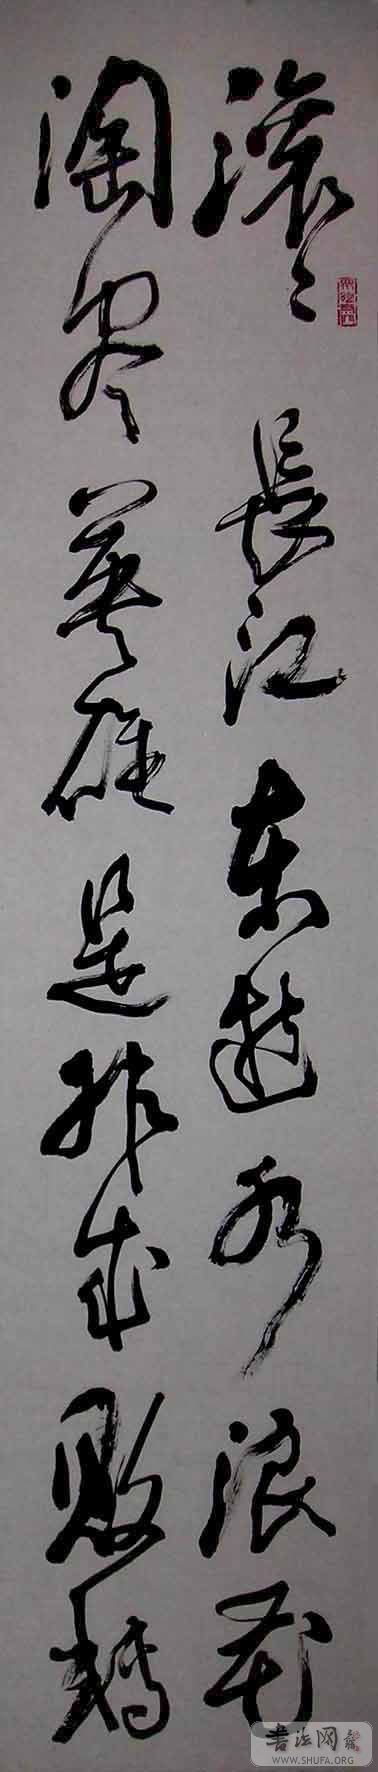 滚〻長江東逝水浪花
淘尽英雄是非成敗轉
書法网
WWW.SHUFA.ORG